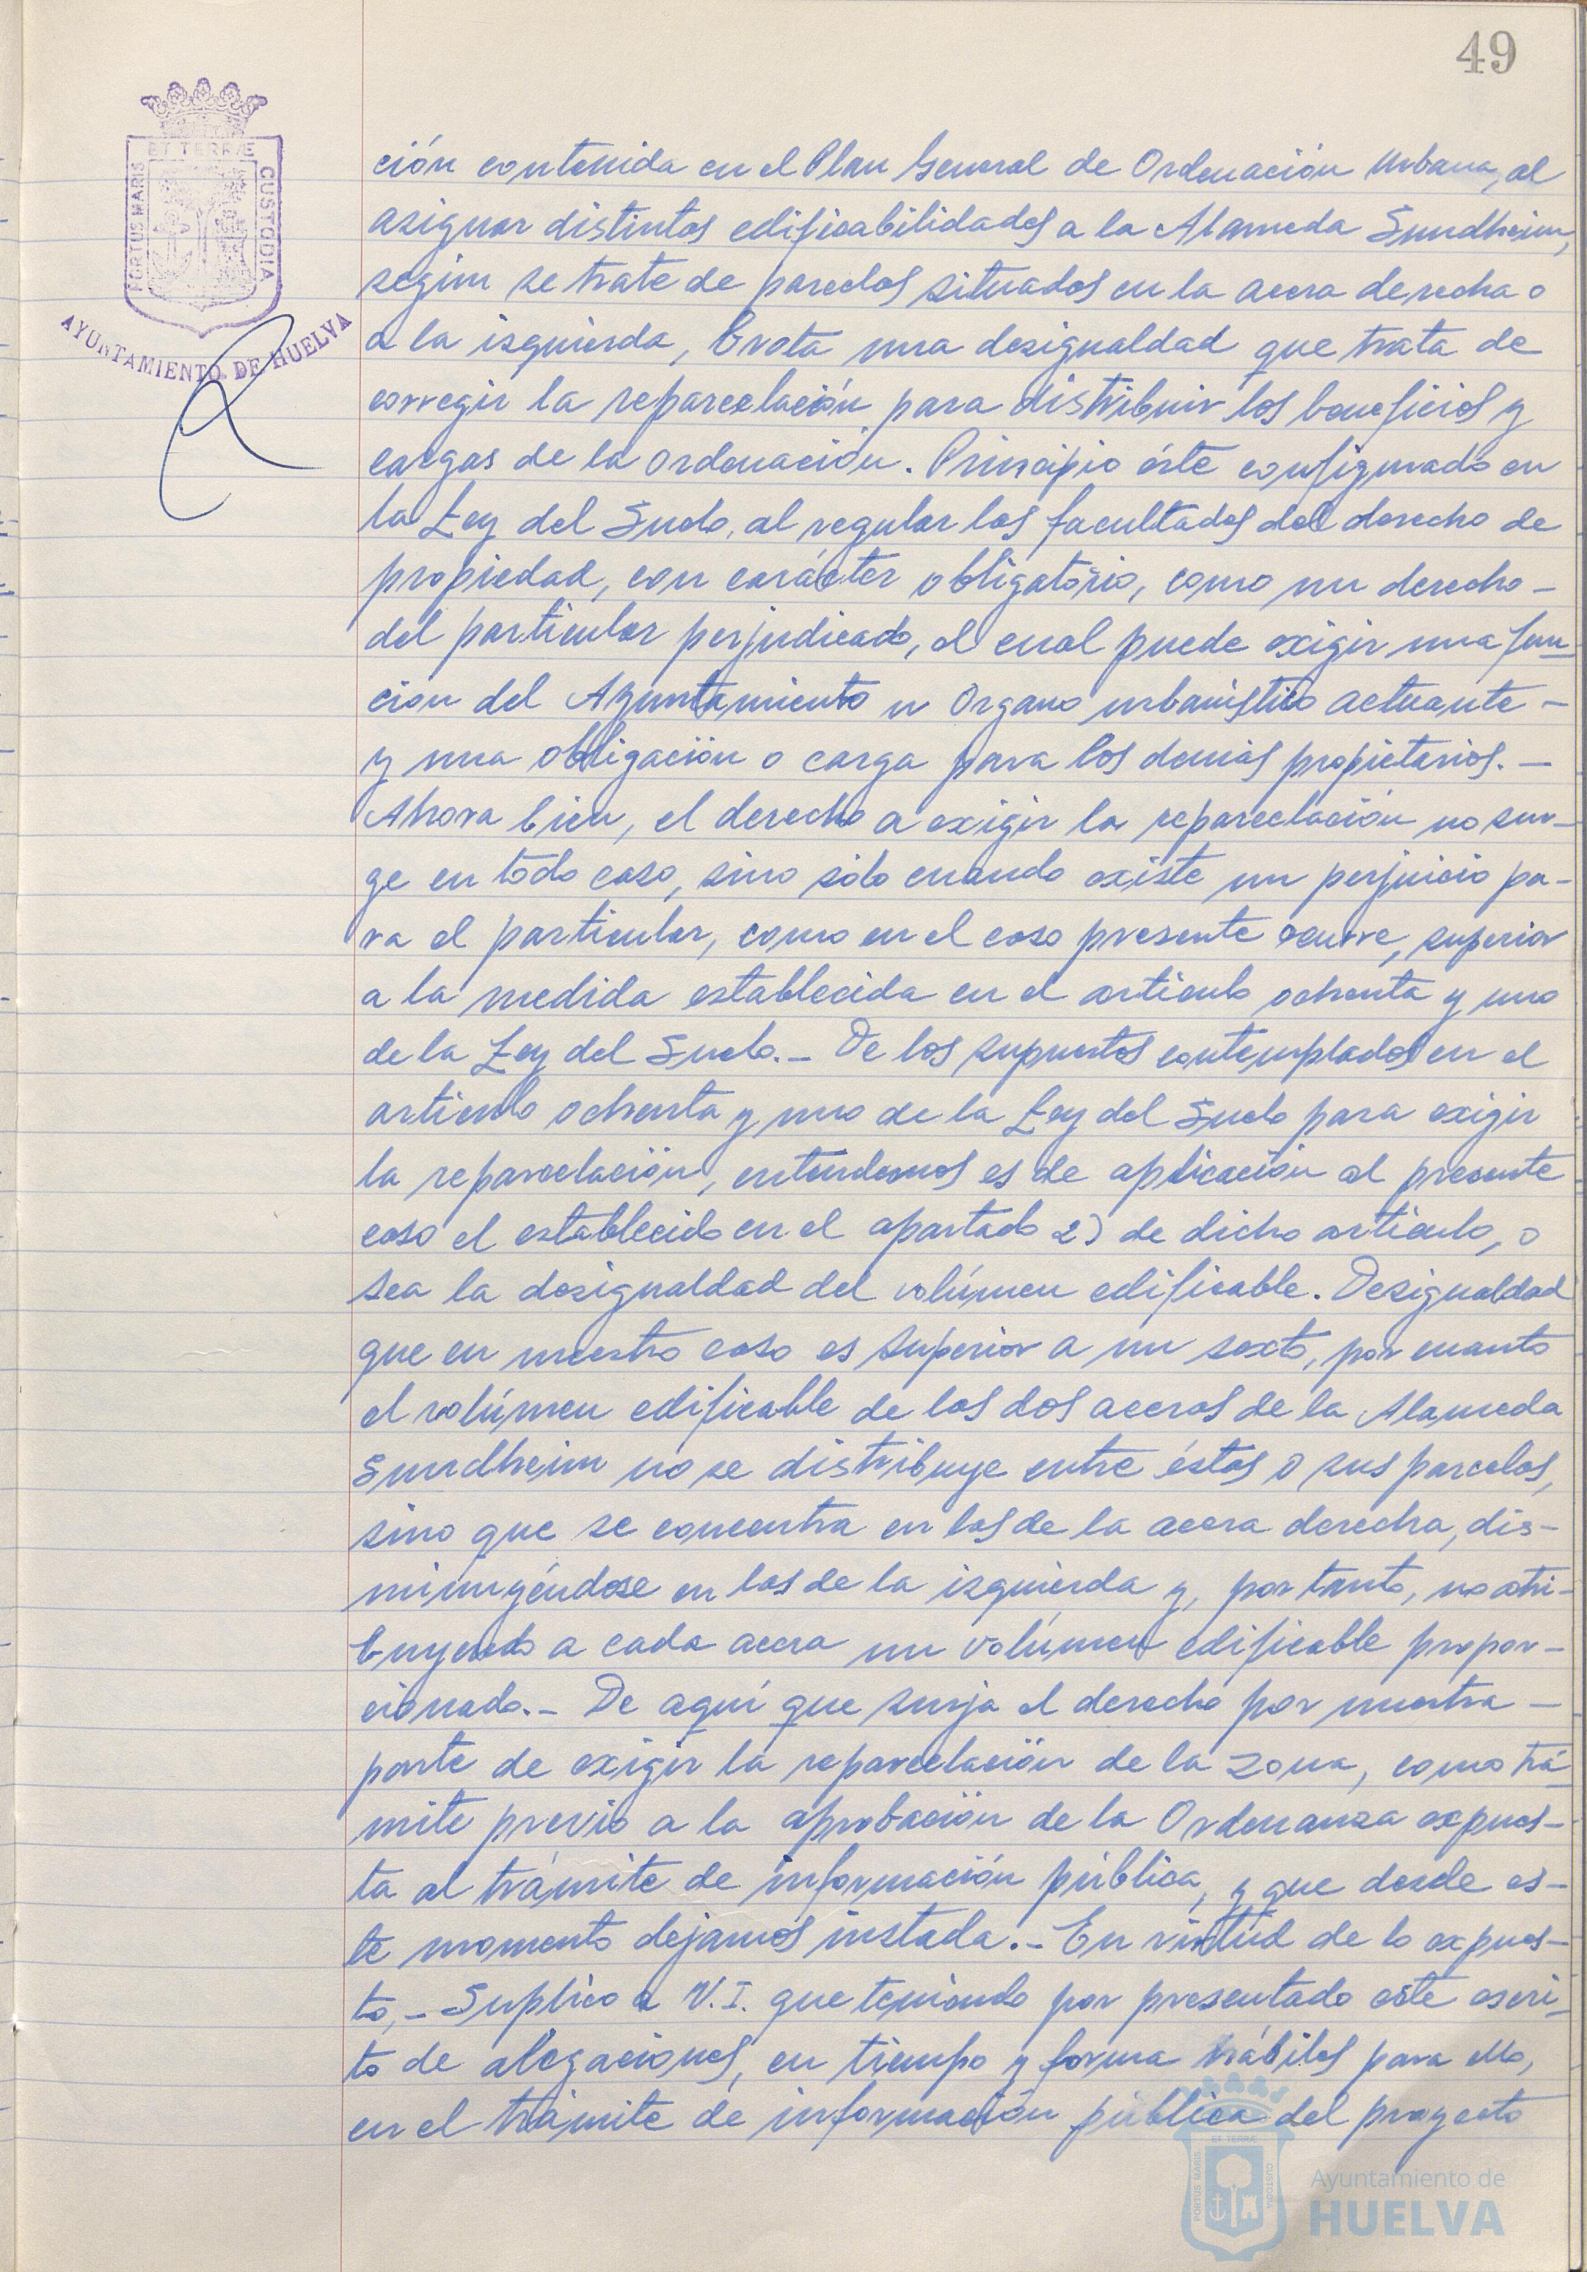 49
PORTUS MARIS
ET TERRÆ
CUSTODIA
AYUNTAMIENTO DE HUELVA
ción contenida en el Plan General de Ordenación Urbana, al
asignar distintas edificabilidades a la Alameda Sundheim,
según se trate de parcelas situadas en la acera derecha o
a la izquierda, brota una desigualdad que trata de
corregir la reparcelación para distribuir los beneficios y
cargas de la ordenación. Principio éste configurado en
la Ley del Suelo, al regular las facultades del derecho de
propiedad, con carácter obligatorio, como un derecho -
del particular perjudicado, el cual puede exigir una fun-
ción del Ayuntamiento u Organo urbanístico actuante -
y una obligación o carga para los demás propietarios. -
Ahora bien, el derecho a exigir la reparcelación no sur-
ge en todo caso, sino sólo cuando existe un perjuicio pa-
ra el particular, como en el caso presente ocurre, superior
a la medida establecida en el artículo ochenta y uno
de la Ley del Suelo. - De los supuestos contemplados en el
artículo ochenta y uno de la Ley del Suelo para exigir
la reparcelación, entendemos es de aplicación al presente
caso el establecido en el apartado 2) de dicho artículo, o
sea la desigualdad del volúmen edificable. Desigualdad
que en nuestro caso es superior a un sexto, por cuanto
el volúmen edificable de las dos aceras de la Alameda
Sundheim no se distribuye entre éstas o sus parcelas,
sino que se concentra en las de la acera derecha, dis-
minuyéndose en las de la izquierda y, por tanto, no atri-
buyendo a cada acera un volúmen edificable propor-
cionado. - De aquí que surja el derecho por nuestra -
parte de exigir la reparcelación de la zona, como trá-
mite previo a la aprobación de la Ordenanza expues-
ta al trámite de información pública, y que desde es-
te momento dejamos instada. - En virtud de lo expues-
to, - Suplico a V.I. que teniendo por presentado este escri-
to de alegaciones, en tiempo y forma hábiles para ello,
en el trámite de información pública del proyecto
PORTUS MARIS
ET TERRÆ
CUSTODIA
Ayuntamiento de
HUELVA